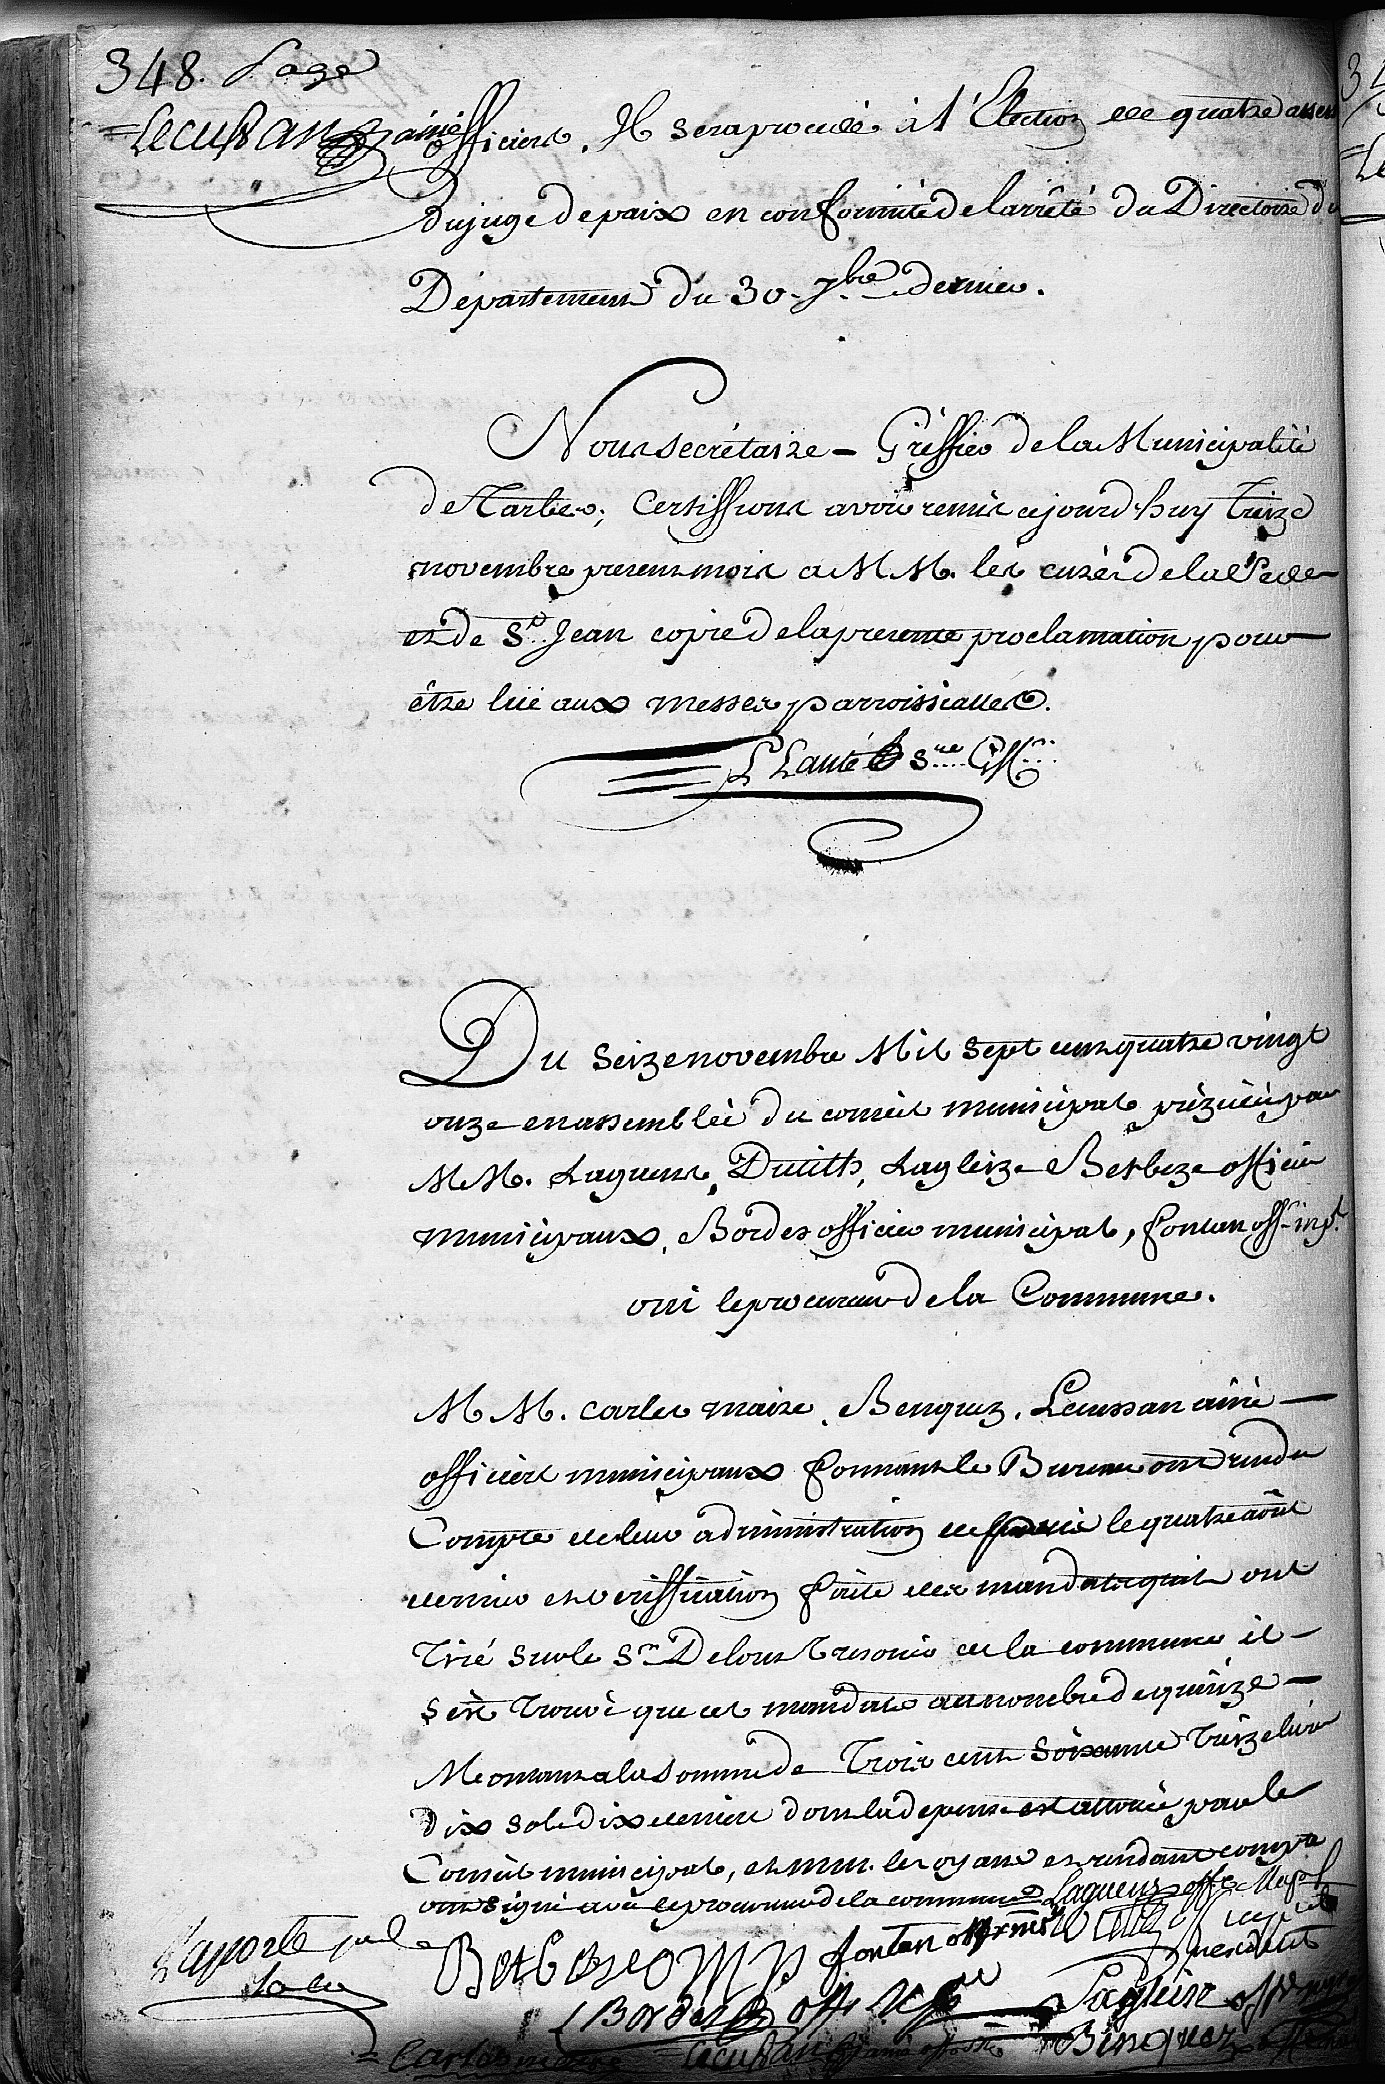 348. Page
Lecussan ainé
officiers. Il sera procédé à l'Election de quatre assess
Du juge de paix en conformité de l'arrêté du Directoire du
Département du 30. 7bre dernier.
Nous secrétaire - Gréffier de la Municipalité
de Tarbes, Certiffions avoir remis cejourd'huy treize
novembre present mois a M M. les curés de la Sede
et de St. Jean copie de la presente proclamation pour
être lüe aux messes parroissialles.
L Lanté sre Greff.
Du seize novembre Mil sept cens quatre vingt
onze en assemblée du conseil municipal prézidé par
M M. Laguens, Duith, Lagleize Berbeze officiers
municipaux, Bordes officier municipal, fontan off. mpl.
oui le procureur de la Commune.
M M. Carles maire, Benquez, Lecussan ainé
officiers municipaux formant le Bureau ont rendu
Compte de leur administration le quatre août
dernier et veriffication faite des mandats qu'ils ont
tiré sur le Sr. Delout tresorier de la commune il
s'est trouvé que ces mandats au nombre de quinze
Montant a la somme de trois cent soixante treize livres
dix sols dix deniers dont la depense est allouée par le
Conseil municipal, et mm. les oyans et rendant compte
ont signé avec le procureur de la commune Laguens offr. Mupal
Laporte
Berbeze O M p fontan off mpl
Bordes off. Lagleize off
Carles maire Lecussan ainé Benquez off